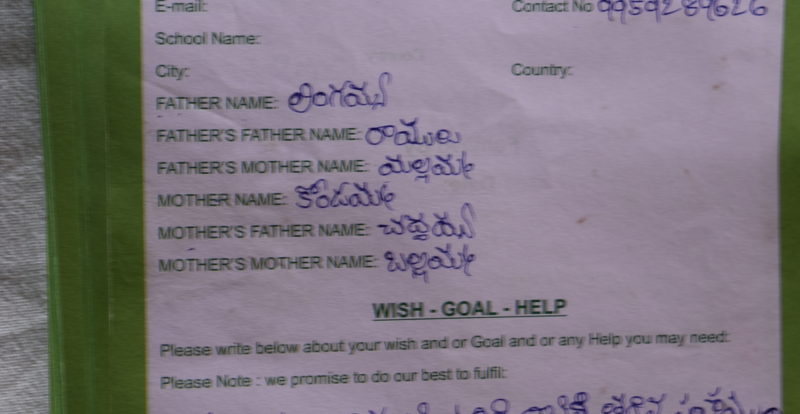 E-mail: Contact No 9959289626
School Name:
City: Country:
FATHER NAME: లింగయ్య
FATHER'S FATHER NAME: రాములు
FATHER'S MOTHER NAME: మల్లమ్మ
MOTHER NAME: కొండమ్మ
MOTHER'S FATHER NAME:
MOTHER'S MOTHER NAME:
WISH - GOAL - HELP
Please write below about your wish and or Goal and or any Help you may need:
Please Note : we promise to do our best to fulfil: